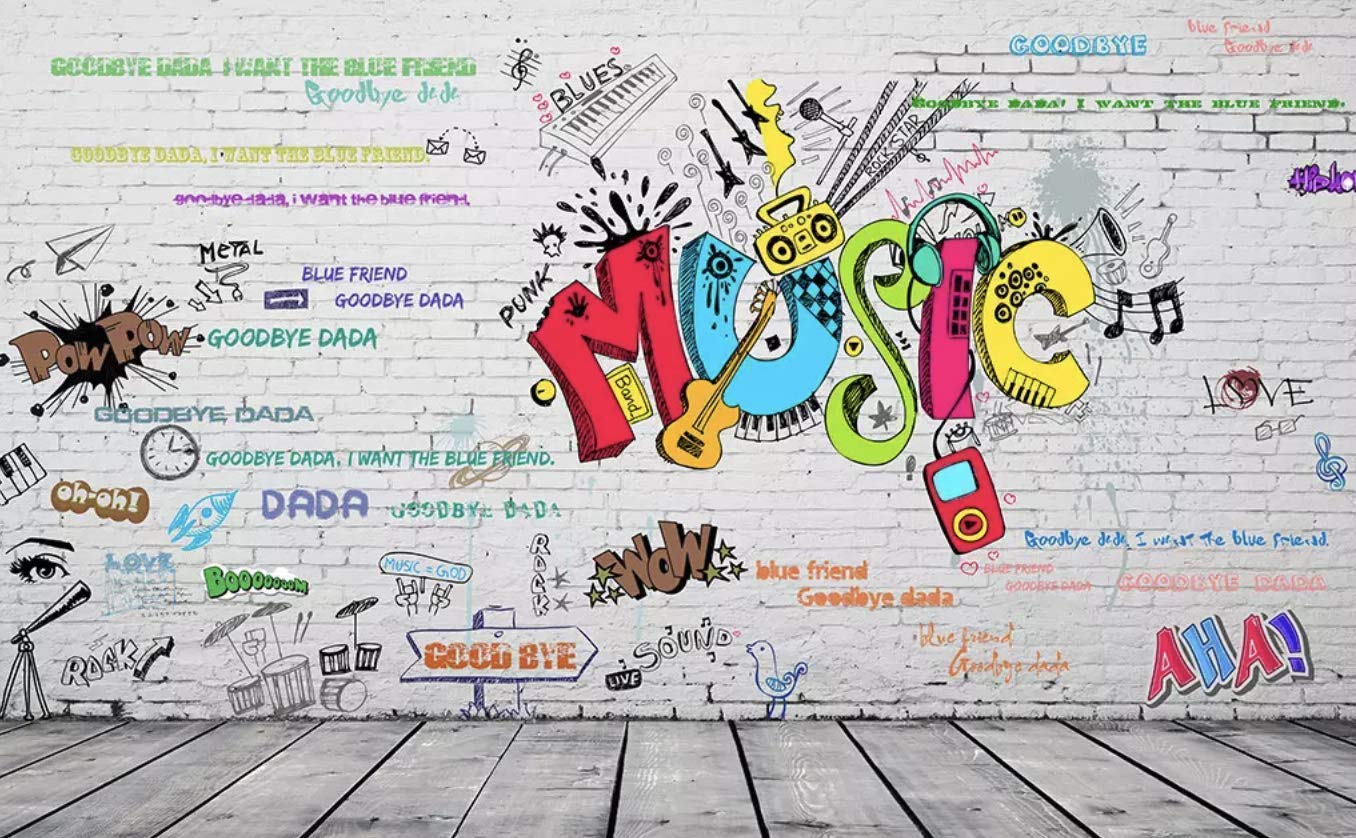 GOODBYE
blue friend
Goodbye dada
GOODBYE DADA I WANT THE BLUE FRIEND
Goodbye dada
BLUES
GOODBYE DADA! I WANT THE BLUE FRIEND.
ROCK STAR
GOODBYE DADA, I WANT THE BLUE FRIEND.
goodbye dada, i want the blue friend.
METAL
BLUE FRIEND
GOODBYE DADA
PUNK
MUSIC
POW POW
GOODBYE DADA
Band
LOVE
GOODBYE DADA
GOODBYE DADA, I WANT THE BLUE FRIEND.
oh-oh!
DADA
GOODBYE DADA
Goodbye dada, I want the blue friend.
LOVE
BOOOOOOOM
MUSIC = GOD
ROCK
WOW
blue friend
Goodbye dada
BLUE FRIEND
GOODBYE DADA
GOODBYE DADA
ROCK
GOOD BYE
SOUND
LIVE
blue friend
Goodbye dada
AHA!